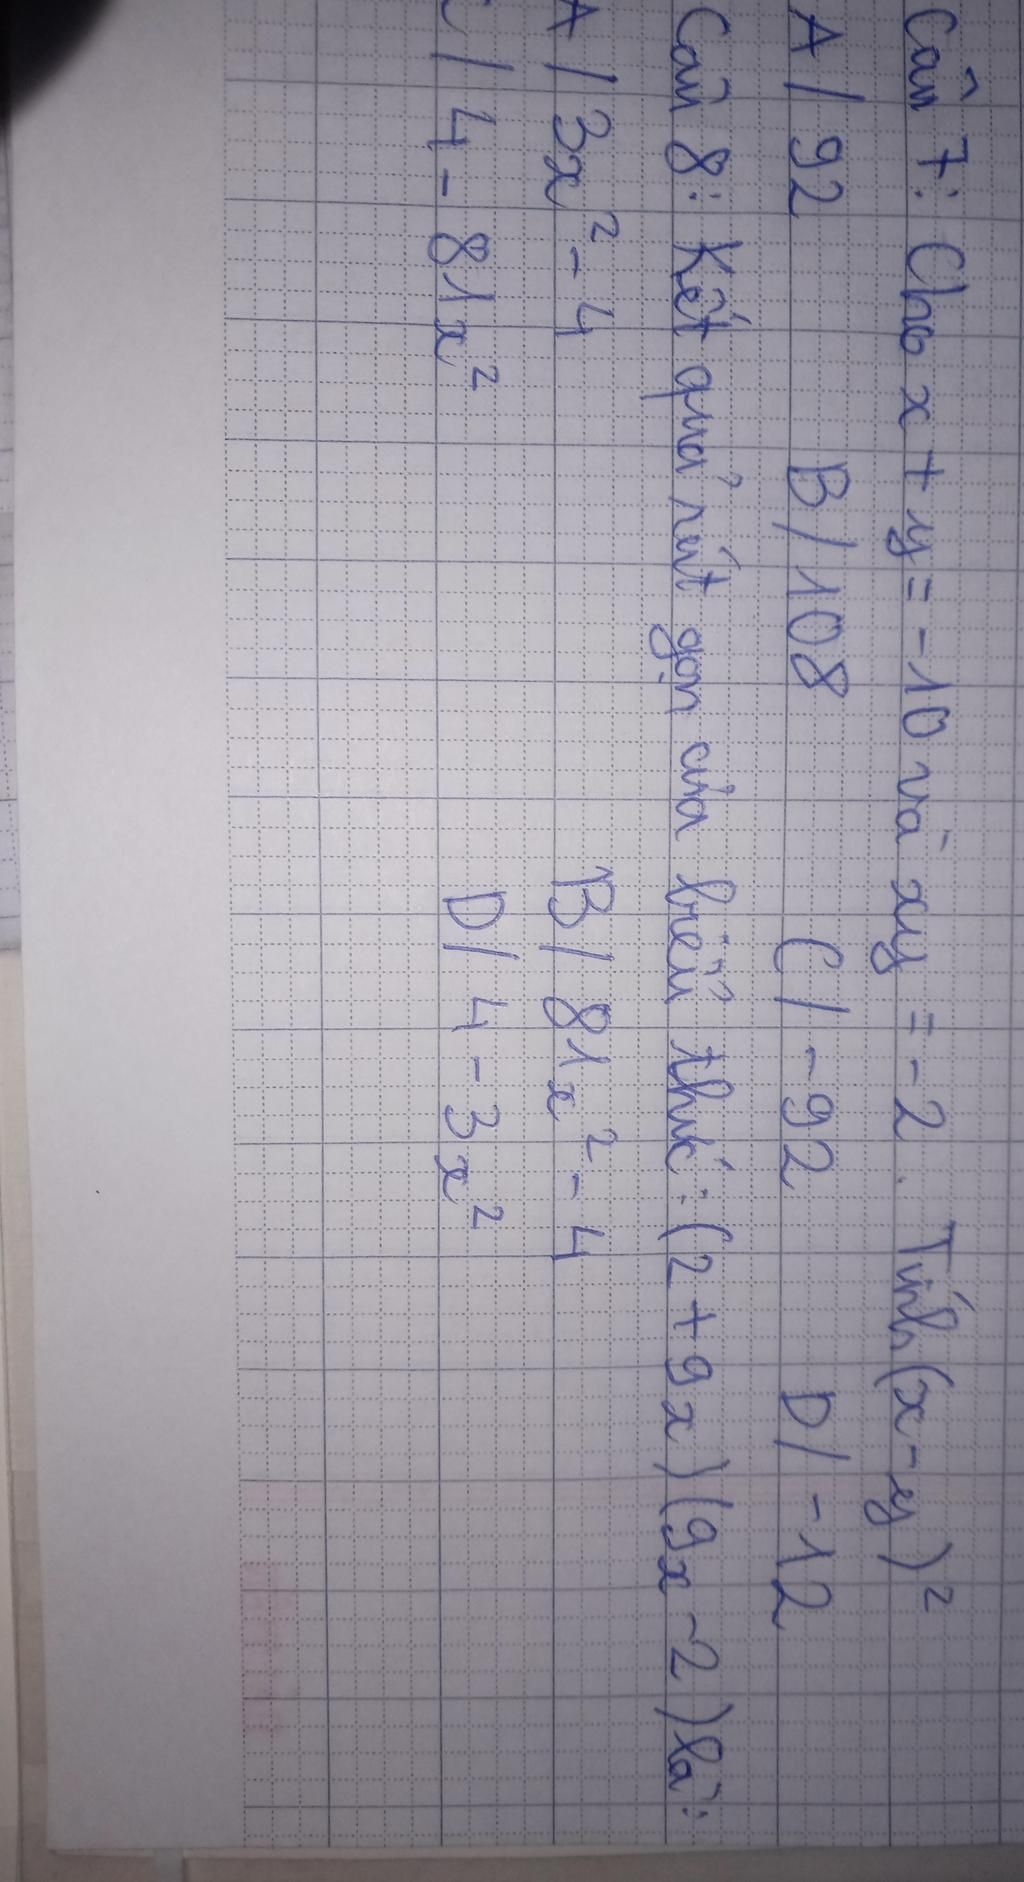 Câu 7: Cho x + y = -10 và xy = -2. Tính (x - y)²
A/ 92 B/ 108 C/ -92 D/ -12
Câu 8: Kết quả rút gọn của biểu thức: (2 + 9x)(9x - 2) là:
A/ 3x² - 4 B/ 81x² - 4
C/ 4 - 81x² D/ 4 - 3x²